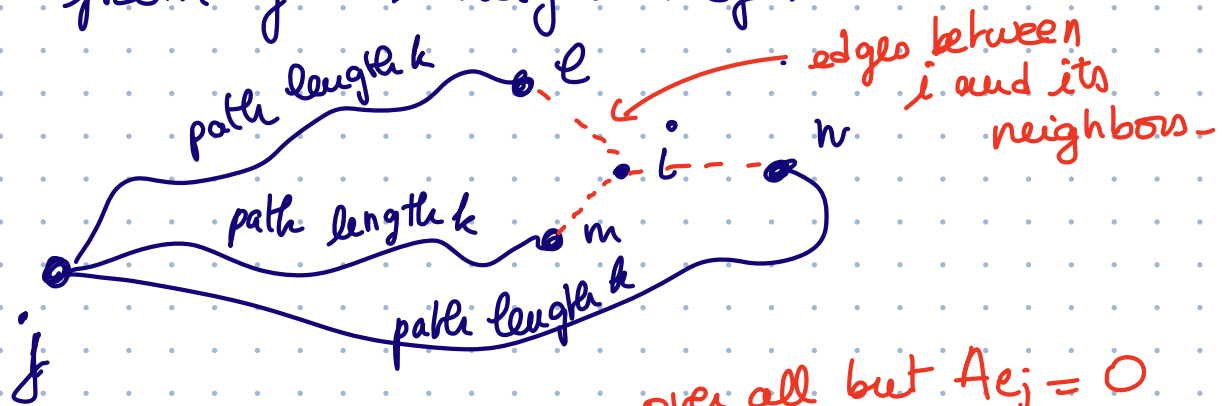 from
path length k
l
edges between
i and its
neighbors
n
i
path length k
m
path length k
j
over all but Aej = 0